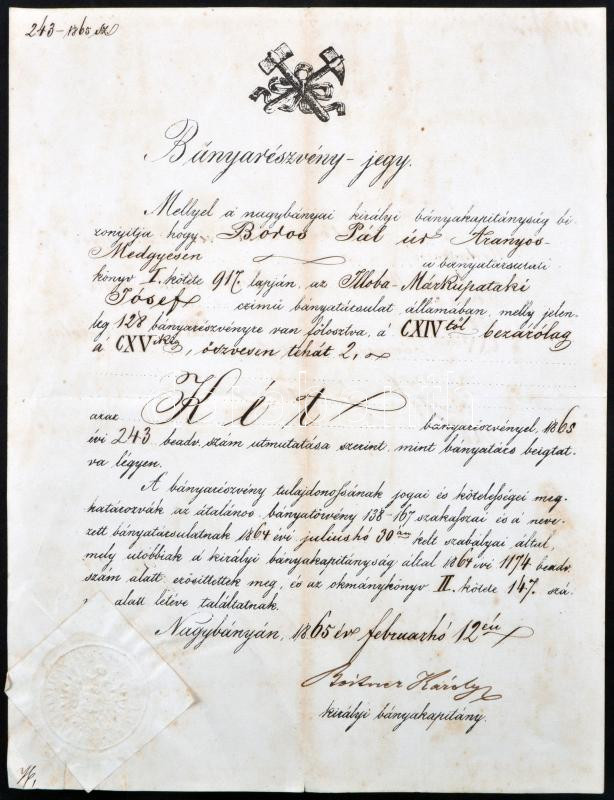 243 – 1865 sz
Bányarészvény-jegy.
Mellyel a nagybányai királyi bányakapitányság bi-
zonyitja hogy Boros Pál úr Aranyos-
Medgyesen a bányatársulati
könyv I. kötete 917 lapján, az Illoba-Márkúpataki
József czimü bányatársulat államában, melly jelen-
leg 128 bányarészvényre van fölosztva, a CXIV től bezárólag
a CXV , öszvesen tehát 2,
azaz Két bányarészvényel, 1865
évi 243 beadv. szám utmutatása szerint, mint bányatárs beigtat-
va légyen.
A bányarészvény tulajdonossának jogai és kötelességei meg-
határozvák az átalános bányatörvény 138–167 szakaszai és a neve-
zett bányatársulatnak 1864 évi juliushó 30 án kelt szabályai által,
mely utóbbiak a királyi bányakapitányság által 1864 évi 1174 beadv.
szám alatt erősittettek meg, és az okmánykönyv II. kötete 147. szá-
alatt letéve találtatnak.
Nagybányán, 1865 év februarhó 12 én
Károly
királyi bányakapitány.